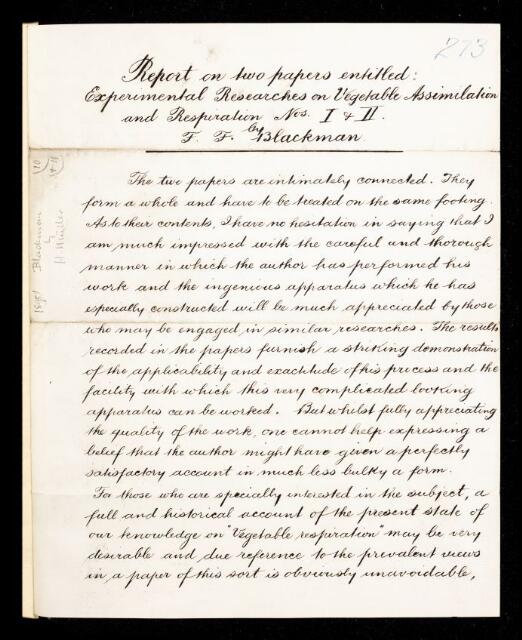 273
Report on two papers entitled:
Experimental Researches on Vegetable Assimilation
and Respiration Nos. I & II.
by
F. F. Blackman.
The two papers are intimately connected. They
form a whole and have to be treated on the same footing.
As to their contents, I have no hesitation in saying that I
am much impressed with the careful and thorough
manner in which the author has performed his
work and the ingenious apparatus which he has
especially constructed will be much appreciated by those
who may be engaged in similar researches. The results
recorded in the papers furnish a striking demonstration
of the applicability and exactitude of his process and the
facility with which this very complicated looking
apparatus can be worked. But whilst fully appreciating
the quality of the work, one cannot help expressing a
belief that the author might have given a perfectly
satisfactory account in much less bulky a form.
For those who are specially interested in the subject, a
full and historical account of the present state of
our knowledge on "Vegetable respiration" may be very
desirable and due reference to the prevalent views
in a paper of this sort is obviously unavoidable,
Blackman
by
H. Müller